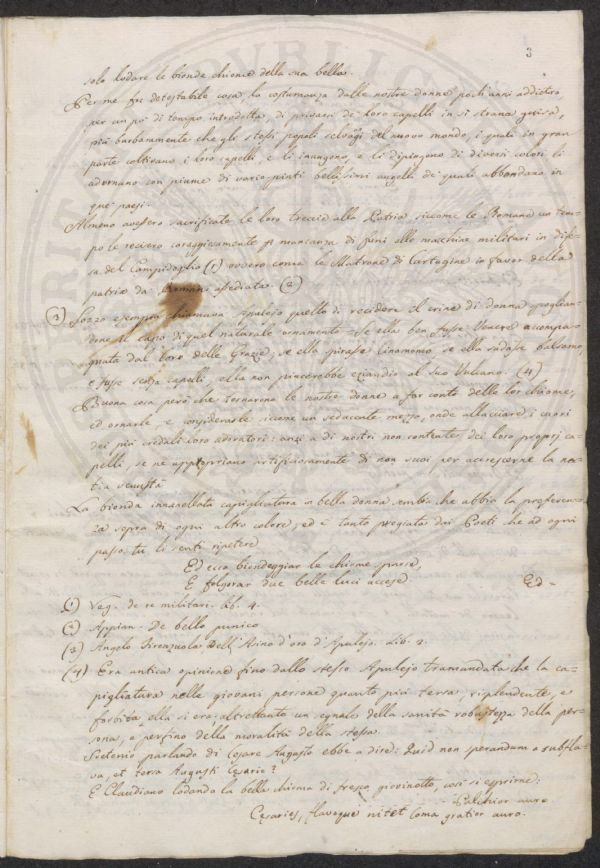 3
solo lodare le bionde chiome della sua bella.
Per me fu detestabile cosa, la costumanza dalle nostre donne pochi anni addietro,
per un po' di tempo introdotta, di privarsi de' loro capelli in sì strana guisa,
più barbaramente che gli stessi popoli selvaggi del nuovo mondo, i quali in gran
parte coltivano i loro capelli, e li inungono, e li dipingono di diversi colori, li
adornano con piume di vario-pinti bellissimi augelli dei quali abbondano in
que' paesi.
Almeno avessero sacrificate le loro treccie alla Patria siccome le Romane un tem-
po le recisero coraggiosamente p mancanza di funi alle macchine militari in dife-
sa del Campidoglio (1) ovvero come le Matrone di Cartagine in favor della
patria da' Romani assediata. (2)
(3) Sozzo esempio chiamava Apulejo quello di recidere il crine di donna spoglian-
done il capo di quel naturale ornamento. Se ella ben fusse Venere accompa-
gnata dal coro delle Grazie, se ella spirasse Cinamomo, se ella sudasse balsamo,
e fusse senza capelli, ella non piacerebbe eziandio al suo Vulcano. (4)
Buona cosa però che tornarono le nostre donne a far conto delle lor chiome,
ed ornarle, e considerarle siccome un seducente mezzo, onde allacciare i cuori
dei più creduli loro adoratori: anzi a dì nostri non contente dei loro proprj ca-
pelli, se ne appropriano artifiziosamente di non suoi per accrescerne la na-
tia venustà
La bionda innanellata capigliatura in bella donna sembra che abbia la preferen-
za sopra di ogni altro colore, ed è tanto pregiata dai Poeti che ad ogni
passo tu li senti ripetere
Ed ecco biondeggiar le chiome sparse,
E folgorar due belle luci accese
Ed-
(1) Veg. de re militari. Lib. 4.
(2) Appian. De bello punico
(3) Angelo Firenzuola Dell'Asino d'oro d'Apulejo. Lib. 2.
(4) Era antica opinione fino dallo stesso Apulejo tramandata che la ca-
pigliatura nelle giovani persone quanto più tersa, risplendente, e
forbita ella si era, altrettanto un segnale della sanità robustezza della per-
sona, e perfino della moralità della stessa.
Svetonio parlando di Cesare Augusto ebbe a dire: Quid non sperandum a subfla-
va, et tersa Augusti Cesarie?
E Claudiano lodando la bella chioma di fresco giovinetto, così si esprime:
Pulchior auro
Cesaries, flavoque nitet coma gratior auro.